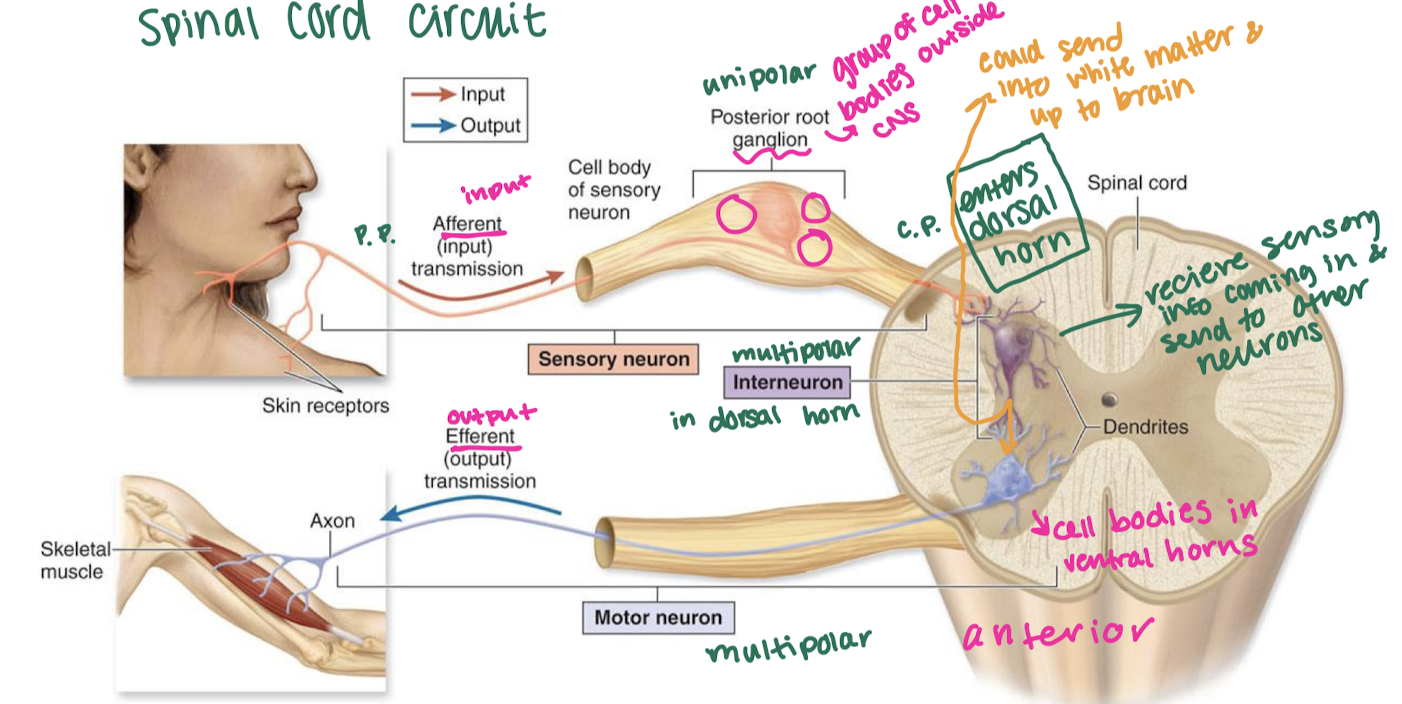 Spinal Cord Circuit
Input
Output
unipolar
group of cell
bodies outside
CNS
Posterior root
ganglion
could send
into white matter &
up to brain
Cell body
of sensory
neuron
input
Afferent
(input)
transmission
P.P.
C.P.
enters
dorsal
horn
Spinal cord
recieve sensory
info coming in &
send to other
neurons
Sensory neuron
Skin receptors
multipolar
Interneuron
in dorsal horn
Dendrites
output
Efferent
(output)
transmission
Axon
Skeletal
muscle
cell bodies in
ventral horns
Motor neuron
multipolar
anterior